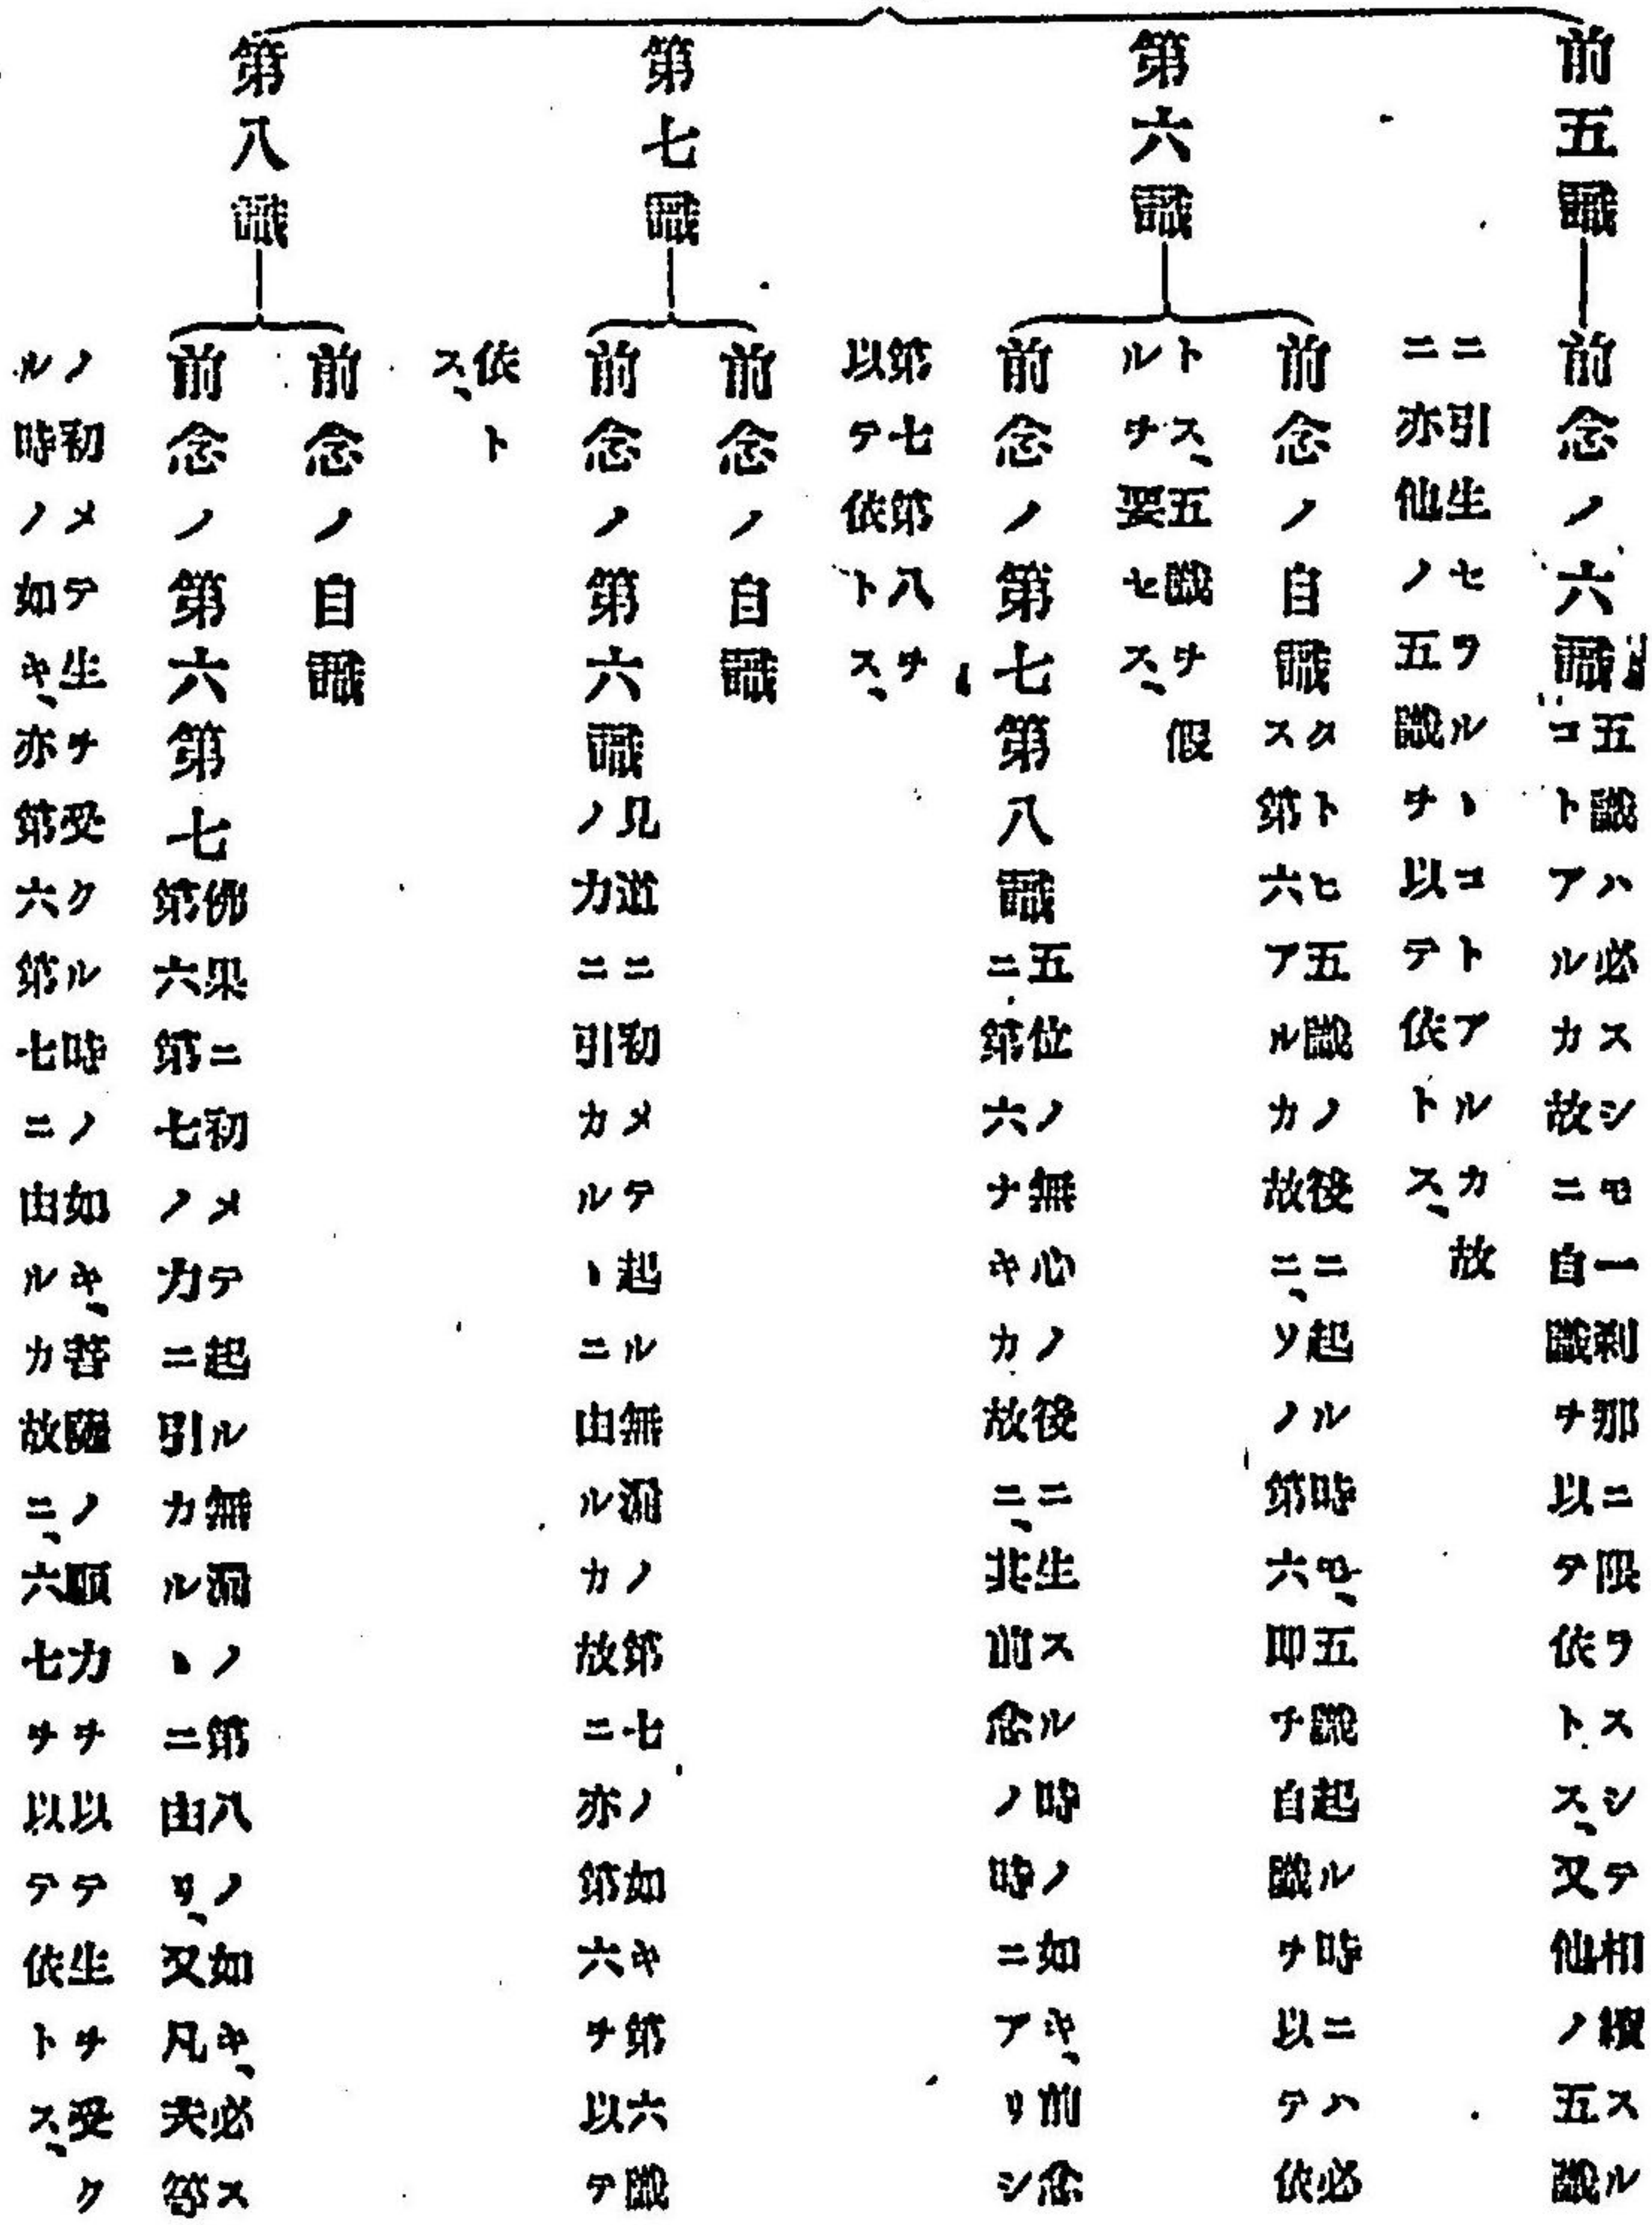 前五識
前念ノ六識
五識ハ必スシモ一刹那ニ限ラスシテ相續スル
コトアルカ故ニ自識ヲ以テ依トス、又他ノ五識
ニ引生セラルヽコトアルカ故
ニ亦他ノ五識ヲ以テ依トス、
第六識
前念ノ自識
タトヒ五識ノ後ニ起ル時モ、五識起ル時ニハ必
ス第六アルカ故ニ、ソノ第六即チ自識ヲ以テ依
トス、五識ヲ假
ルヲ要セス、
前念ノ第七第八識
五位ノ無心ノ後ニ生スル時ノ如キ、前念
ニ第六ナキカ故ニ、其前念ノ時ニアリシ
第七第八ヲ
以テ依トス、
第七識
前念ノ自識
前念ノ第六識
見道ニ初メテ起ル無漏ノ第七ノ如キ第六識
ノ力ニ引カルヽニ由ルカ故ニ亦第六ヲ以テ
依ト
ス、
第八識
前念ノ自識
前念ノ第六第七
佛果ニ初メテ起ル無漏ノ第八ノ如キ、必ス
第六第七ノ力ニ引カルヽニ由リ、又凡夫等
ノ初メテ生ヲ受クル時ノ如キ、菩薩ノ願力ヲ以テ生ヲ受ク
ル時ノ如キ、亦第六第七ニ由ルカ故ニ、六七ヲ以テ依トス、